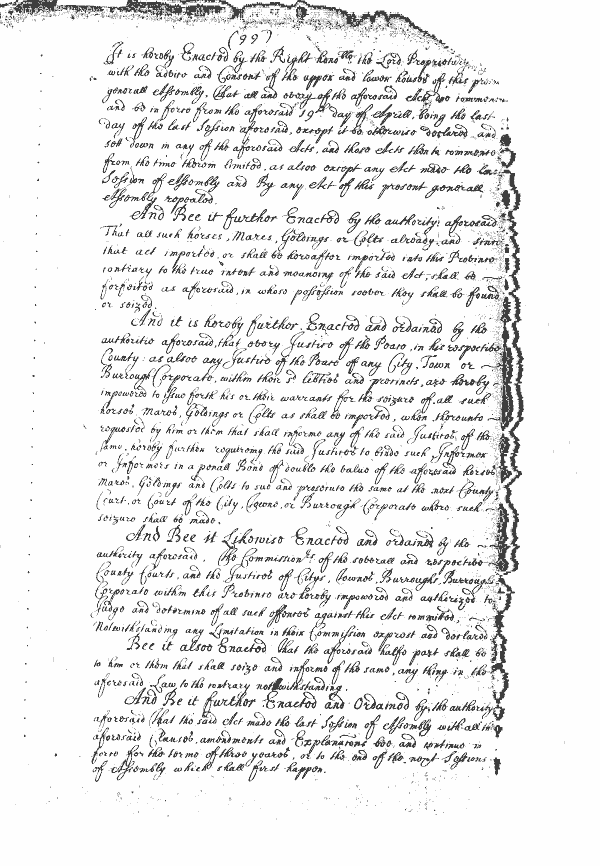 (99)
It is hereby Enacted by the Right hono:ble the Lord Proprietary
with the advice and Consent of the upper and lower houses of this
generall Assembly. That all and every of the aforesaid Acts, do commence
and be in force from the aforesaid 19th day of Aprill, being the last
day of the last Session aforesaid, except it be otherwise declared, and
sett down in any of the aforesaid Acts, and those Acts then to commence
from the time therein limited, as also except any Act made the last
Session of Assembly and By any Act of this present generall
Assembly repealed.
And Bee it further Enacted by the authority aforesaid
That all such horses, Mares, Geldings or Colts already and since
that act imported, or shall be hereafter imported into this Province
contrary to the true intent and meaning of the said Act, shall be
forfeited as aforesaid, in whose possession soever they shall be found
or seized.
And it is hereby further Enacted and ordained by the
authoritie aforesaid, that every Justice of the Peace, in his respective
County: as also any Justice of the Peace of any City, Town or
Burrough Corporate, within their sd. and precincts, are hereby
impowered to issue forth his or their warrants for the seizure of all such
horses, Mares, Geldings or Colts as shall be imported, when thereunto
requested by him or them that shall informe any of the said Justices, of the
same, hereby further requireing the said Justices to binde such Informer
or Informers in a penall Bond of double the value of the aforesaid horses
Mares, Geldings and Colts to sue and prosecute the same at the next County
Court, or Court of the City, Towne, or Burrough Corporate where such
seizure shall be made.
And Bee it Likewise Enacted and ordained by the
authority aforesaid, the Commissionrs. of the severall and respective
County Courts, and the Justices of Citys, Townes, Burroughs, Burroughs
Corporate within this Province are hereby impowered and authorized to
Judge and determine of all such offences against this Act committed,
Notwithstanding any Limitation in their Commission exprest and declared
Bee it alsoe Enacted that the aforesaid halfe part shall be
to him or them that shall seize and informe of the same, any thing in the
aforesaid Law to the contrary notwithstanding.
And Be it further Enacted and Ordained by the authority
aforesaid that the said Act made the last Session of Assembly with all the
aforesaid Clauses, amendments and Explanations bee, and continue in
force for the terme of three yeares, or to the end of the next Sessions
of Assembly which shall first happen.